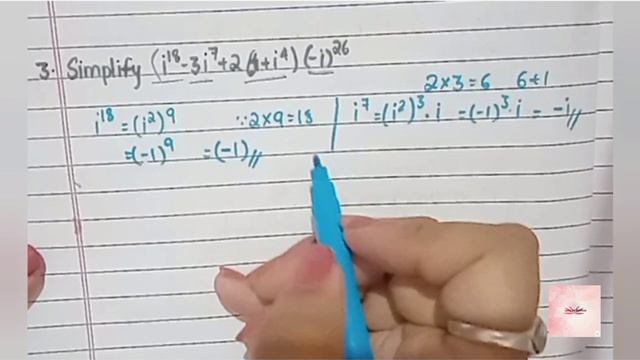 3. Simplify (i¹⁸-3i⁷+2(1+i⁴)(-i)²⁶
2×3=6 6+1
i¹⁸=(i²)⁹ ∵2×9=18
i⁷=(i²)³·i =(-1)³·i = -i//
=(-1)⁹ =(-1)//